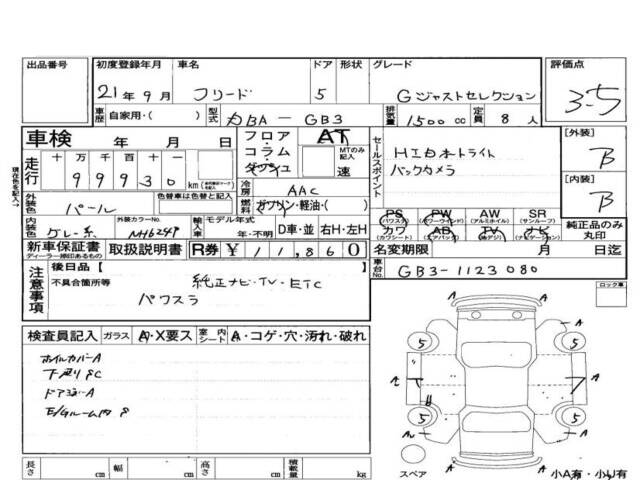 出品番号 初度登録年月 車名 ドア 形状 グレード 評価点
21年9月 フリード 5 Gジャストセレクション 3.5
車歴 自家用・( ) 型式 DBA-GB3 排気量 1500cc 定員 8人
車検 年 月 日 フロア・コラム・ダッシュ AT MTのみ記入 速 セールスポイント HIDオートライト [外装] B
走行 十 万 千 百 十 一
99930 km 冷房 AAC バックカメラ [内装] B
外装色 パール 色替車は色替と記入 燃料 ガソリン・軽油・( )
PS (パワステ) PW (パワーウインド) AW (アルミホイル) SR (サンルーフ) 純正品のみ丸印
カワ (カワシート) AB (エアバック) TV (地デジ) ナビ (ナビゲーション)
内装色 グレー系 外装カラーNo. NH624P 輸入車 モデル年式 年・不明 D車・並 右H・左H
新車保証書 ディーラー捺印あるもの 取扱説明書 R券 ¥11,860 名変期限 月 日迄
注意事項 後日品【 車台No. GB3-1123080
不具合箇所等 純正ナビ・TV・ETC ロック車
パワスラ
検査員記入 ガラス A・X要ス 室内シート A・コゲ・穴・汚れ・破れ
ホイルカバーA
下廻りSC
A
E/Gルーム内 S
A A
5 5
A A
5 5
A
スペア
長さ cm 幅 cm 高さ cm 積載量 kg 小A有・小U有
現在地を記入→